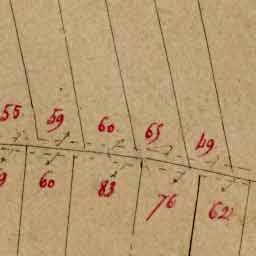 55 59 60 65 49
60 83 76 62